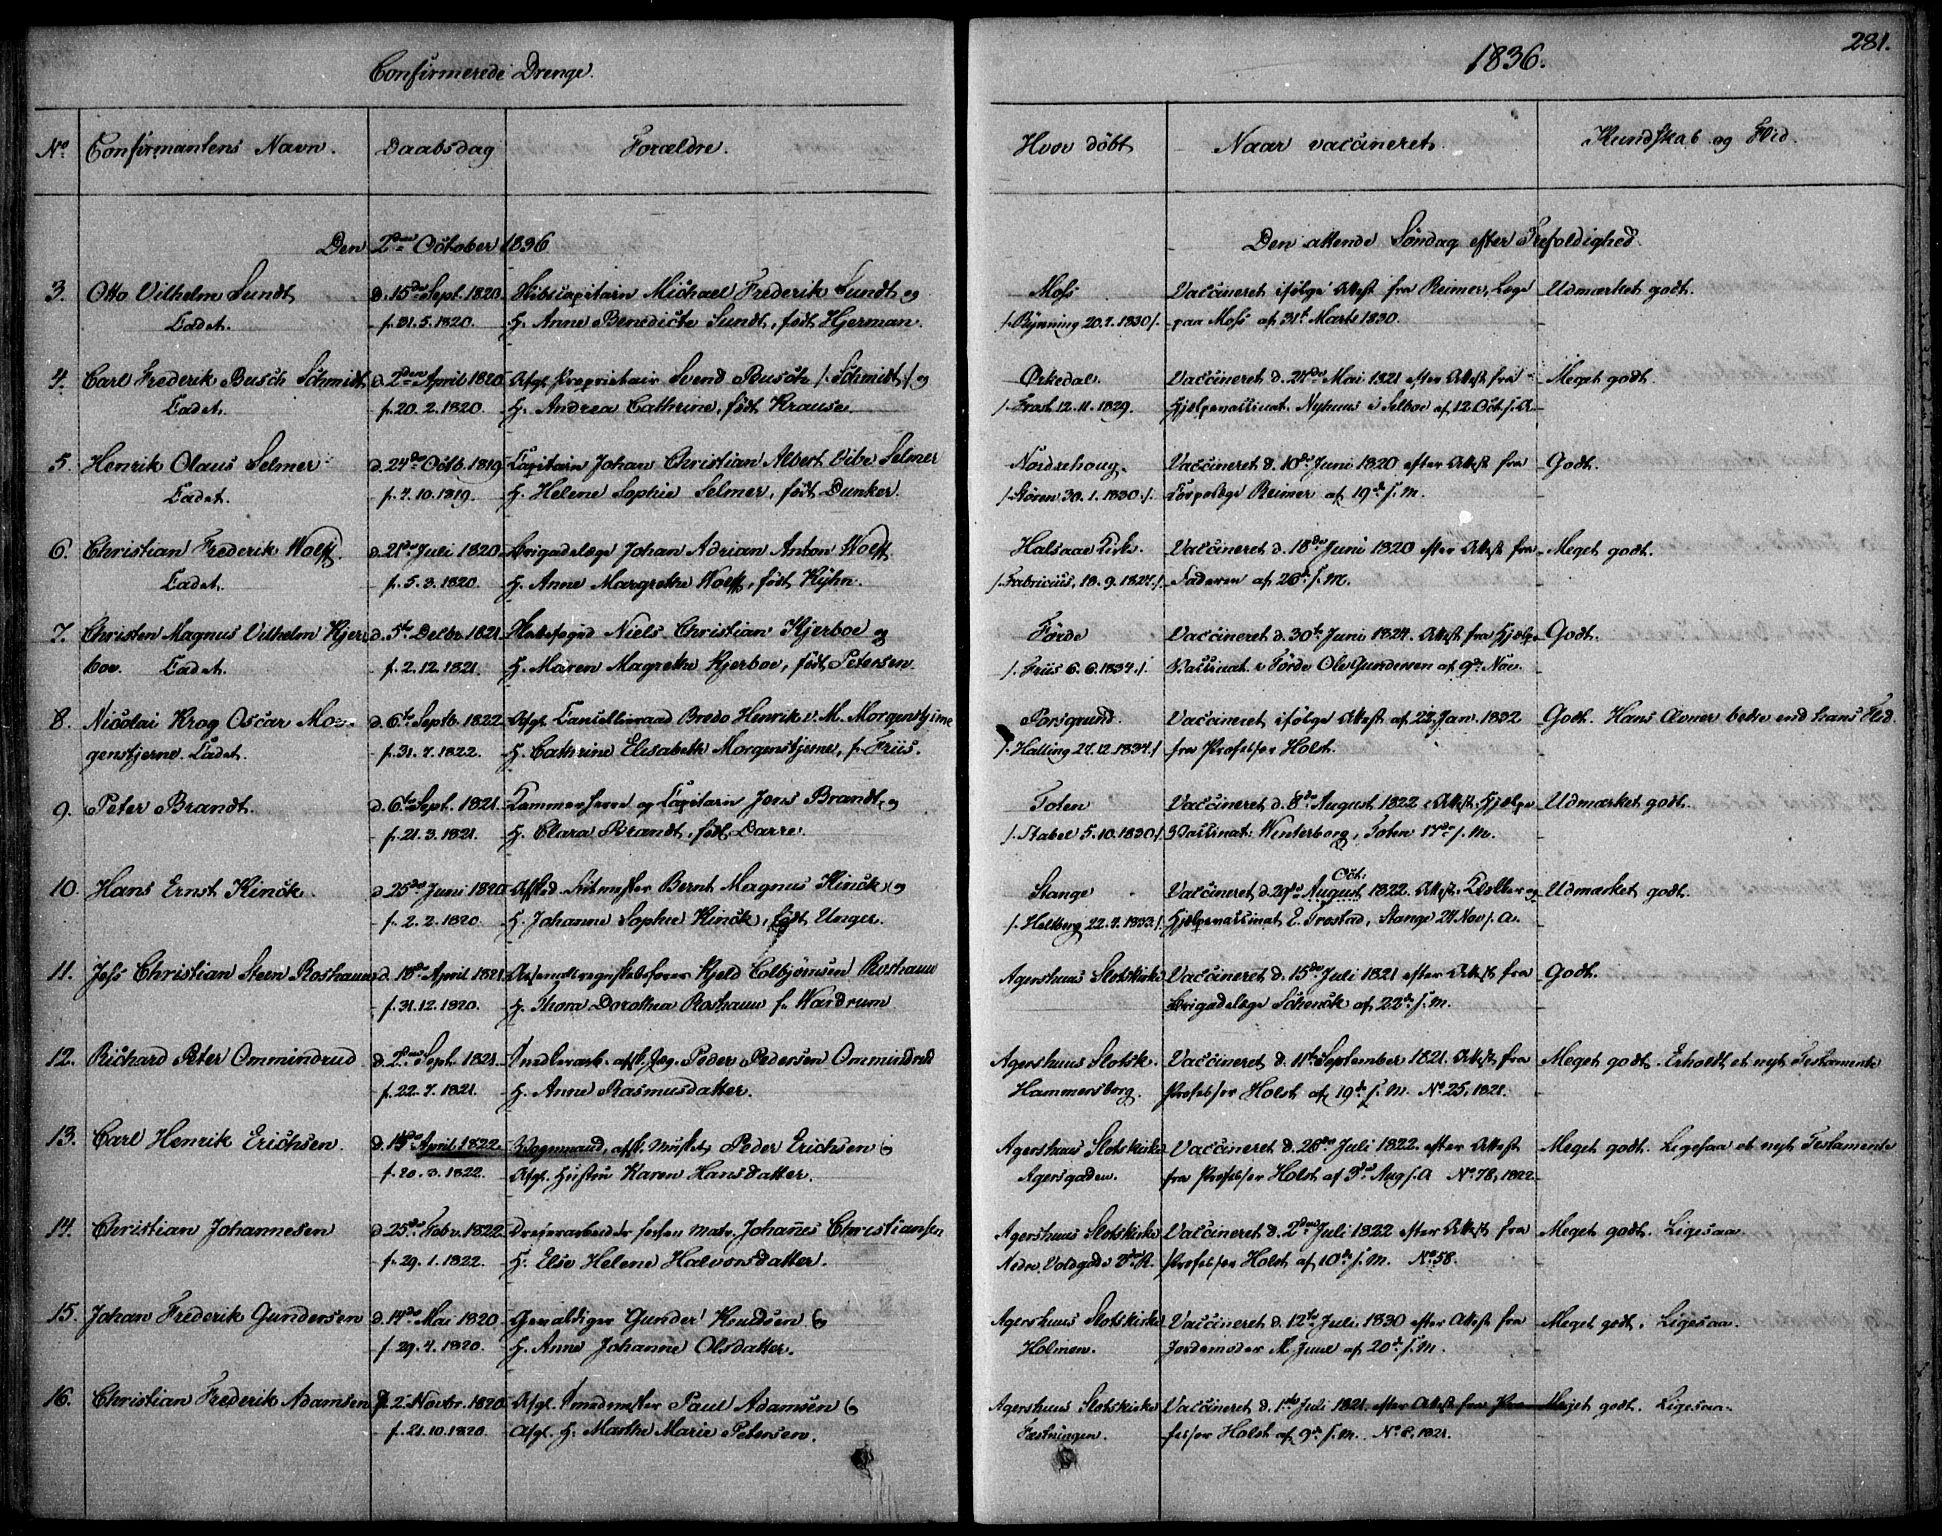 Confirmerede Drenge.
1836.
281.
No. Confirmantens Navn. Daabsdag Forældre. Hvor döbt Naar vaccineret. Kundskab og Flid.
Den 2den October 1836. Den attende Söndag efter Trefoldighed.
3. Otto Vilhelm Sundt d. 15de Sept. 1820. Michael Frederik Sundt og Moss Vaccineret ifölge Attest fra Reimer, Læge Udmærket godt.
Cadet. f. 31.5.1820. H. Anne Benedicte Sundt, födt Hjerman. /. Bynning 20.7.1830 /. paa Moss af 31te Marts 1830.
4. Carl Frederik Busch Schmidt d. 2den April 1820 Afg. Proprietair Svend Busch /. Schmidt /. og Örkedal. Vaccineret d. Mai 1821 efter Attest fra Meget godt.
Cadet. f. 20.2.1820. H. Andrea Cathrine, födt Krause /. Frost 12.11.1829. Hjelpevaccinat. Nyhuus i Selboe af 12 Oct. s. A.
5. Henrik Olaus Selmer d. 24de Octb. 1819 Capitain Johan Christian Albert Vibe Selmer Nordrehoug. Vaccineret d. 10de Juni 1820 efter Attest fra Godt.
Cadet. f. 7.10.1819. H. Helene Sophie Selmer, födt Dunker. /. Stören 30.1.1830 /. Corpslæge Reimer af 19de s. M.
6. Christian Frederik Wolff. d. 21de Juli 1820 Brigadelæge Johan Adrian Anton Wolff Halsaae Kirke. Vaccineret d. 18de Juni 1820 efter Attest fra Meget godt.
Cadet. f. 5.3.1820. H. Anne Margrethe Wolff, födt Kyhn. /. Fabricius, 18.9.1827 /. Faderen af 26de s. M.
7. Christen Magnus Vilhelm Kjer- d. 5te Decbr. 1821 Niels Christian Kjerboe og Förde Vaccineret d. 30te Juni 1824. Attest fra Hjelpe- Godt.
boe. Cadet. f. 2.12.1821. H. Maren Magrethe Kjerboe, födt Petersen. /. Friis 6.6.1834 /. Vaccinat. i Förde Ole Gundersen af 9de Nov.
8. Nicolai Krog Oscar Mor- d. 6te Septb. 1822 Afg. Cancelliraad Bredo Henrik v. M. Morgenstjerne Porsgrund. Vaccineret ifölge Attest af 22 Jan. 1832 Godt. Hans Ævner bedre end hans Flid.
genstjerne. Cadet. f. 31.7.1822. H. Cathrine Elisabeth Morgenstjerne, f. Friis. /. Halling 27.12.1834 /. fra Professor Holst.
9. Peter Brandt. d. 6te Sept. 1821. Kammerherre og Capitain Jens Brandt, og Toten Vaccineret d. 8de August 1822 Attest Hjelpe- Udmærket godt.
f. 21.3.1821. H. Clara Brandt, födt Darre. /. Stabel 5.10.1830 /. Vaccinat: Winterborg, Toten 17de s. M.
10. Hans Ernst Kinck d. 25de Juni 1820 Afsked. Ritmester Bernt Magnus Kinck og Stange Vaccineret d. 29de Oct. August 1822. Attest. Klokker og Udmærket godt.
f. 2.2.1820. H. Johanne Sophie Kinck, födt Unger. /. Holberg 22.7.1833 /. Hjelpevaccinat E. Frostad, Stange 24 Nov s. A.
11. Jess Christian Steen Roshauw d. 18de April 1821 Arsenalregnskabsförer Kjeld Colbjörnsen Roshauw Agershuus Slotskirke Vaccineret d. 15de Juli 1821 efter Attest fra Godt.
f. 31.12.1820. H. Thora Dorothea Roshauw f. Wardrum Brigadelæge Schenck af 22de s. M.
12. Richard Peter Ommindrud d. 2den Sept. 1821. Peder Pedersen Ommindrud Agershuus Slotsk. Vaccineret d. 11te September 1821. Attest fra Meget godt. Erholdt et nyt Testamente
f. 22.7.1821. H. Anne Rasmusdatter. Hammersborg. Professor Holst af 19de s. M. No. 25, 1821.
13. Carl Henrik Erichsen. d. 14de April 1822. Vognmand, afsk. Musket. Peder Erichsen & Agershuus Slotskirke Vaccineret d. 26de Juli 1822. efter Attest Meget godt. Ligesaa et nyt Testamente
f. 20.3.1822. Afg. Hustru Karen Hansdatter. Agersgaden. fra Professor Holst af 3de Aug s. A No. 78, 1822.
14. Christian Johannesen d. 25de Febr. 1822 Dreierarbeider Johanes Christiansen Agershuus Slotskirke Vaccineret d. 2den Juli 1822 efter Attest fra Meget godt. Ligesaa.
f. 29.1.1822. H. Else Helene Halvorsdatter. Nedre Voldgade Professor Holst af 10de s. M. No. 58.
15. Johan Frederik Gundersen d. 14de Mai 1820. Gevaldiger Gunder Knudsen & Agershuus Slotskirke Vaccineret d. 12te Juli 1830 efter Attest fra Meget godt. Ligesaa.
f. 29.4.1820. H. Anne Johanne Olsdatter. Holmen. Jordemoder M. Juul af 20de s. M.
16. Christian Frederik Adamsen d. 2 Novbr. 1820 Afg. Smedmester Paul Adamsen & Agershuus Slotskirke Vaccineret d. 1ste Juli 1821 efter Attest fra Pro- Meget godt. Ligesaa.
f. 21.10.1820. Afg. H. Marthe Marie Petersen. Fæstningen. fessor Holst af 9de s. M. No. 8, 1821.